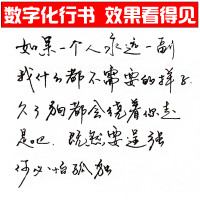 数字化行书 效果看得见
如果一个人永远一副
我什么都不需要的样子
久了狗都会绕着你走
是吧 既然要逞强
何必怕孤独